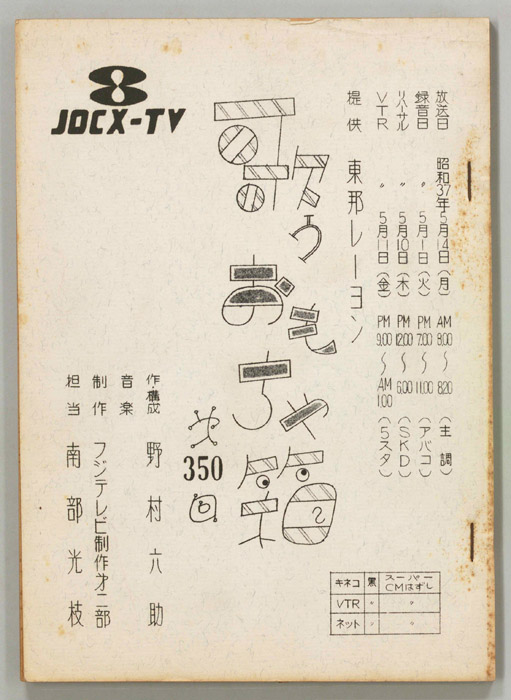 JOCX-TV
放送日 昭和37年5月14日(月) AM 8.00〜8.20 (主調)
録音日 〃 5月1日(火) PM 7.00〜11.00 (アバコ)
リハーサル 〃 5月10日(木) PM 12.00〜6.00 (SKD)
VTR 〃 5月11日(金) PM 9.00〜AM 1.00 (5スタ)
提供 東邦レーヨン
歌うおもちゃ箱
第350回
作・構成 野村六助
音楽
制作 フジテレビ制作第二部
担当 南部光枝
キネコ 黒 スーパーCMはずし
VTR 〃 〃
ネット 〃 〃